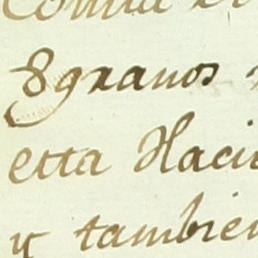 8 granos
etta Haci
y tambien